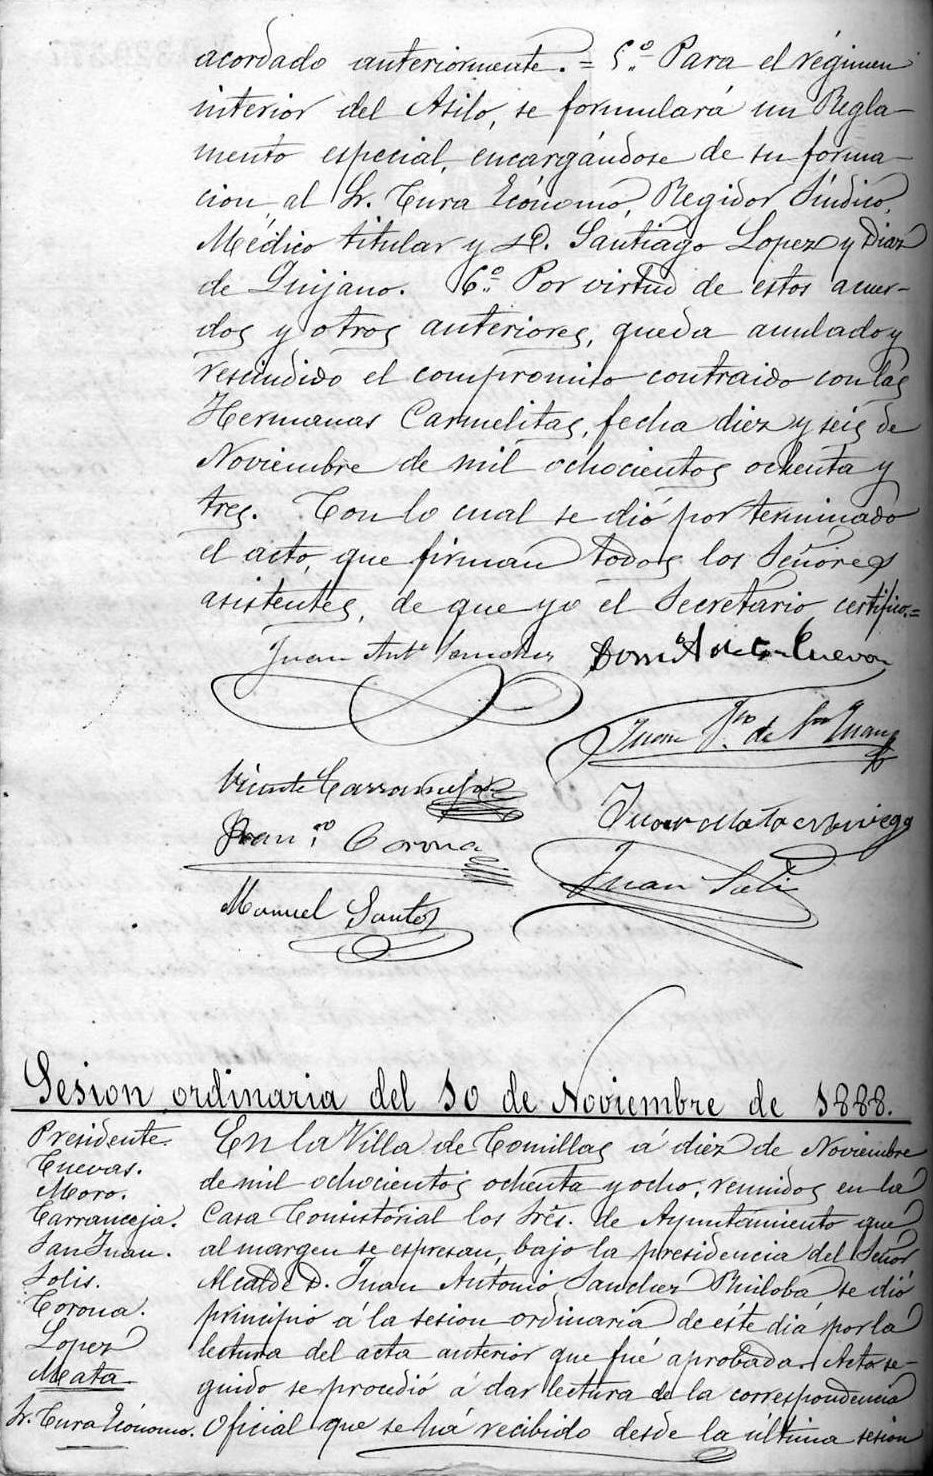 acordado anteriormente. = 5.º Para el régimen
interior del Asilo, se formulará un Regla-
mento especial, encargándose de su forma-
cion, al Sr. Cura Ecónomo, Regidor Síndico,
Médico titular y D. Santiago Lopez y Diaz
de Quijano. 6.º Por virtud de estos acuer-
dos y otros anteriores, queda anulado y
rescindido el compromiso contraido con las
Hermanas Carmelitas, fecha diez y seis de
Noviembre de mil ochocientos ochenta y
tres. Con lo cual se dió por terminado
el acto, que firman todos los Señores
asistentes, de que yo el Secretario certifico.=
Juan Ant.º Sanchez
Dom.º A de la Cuevas
Juan de San Juan
Vicente Carranceja
Juan de la Mata
Fran.co Corona
Juan Solis
Manuel Santos
Sesion ordinaria del 10 de Noviembre de 1888.
Presidente.
Cuevas.
Moro.
Carranceja.
San Juan.
Solis.
Corona.
Lopez
Mata.
Sr. Cura Ecónomo.
En la Villa de Comillas á diez de Noviembre
de mil ochocientos ochenta y ocho, reunidos en la
Casa Consistorial los Srēs. de Ayuntamiento que
al margen se espresan, bajo la presidencia del Señor
Alcalde D. Juan Antonio Sanchez Ruiloba se dió
principio á la sesion ordinaria de éste dia por la
lectura del acta anterior que fué aprobada. Acto se-
guido se procedió á dar lectura de la correspondencia
Oficial que se há recibido desde la última sesion